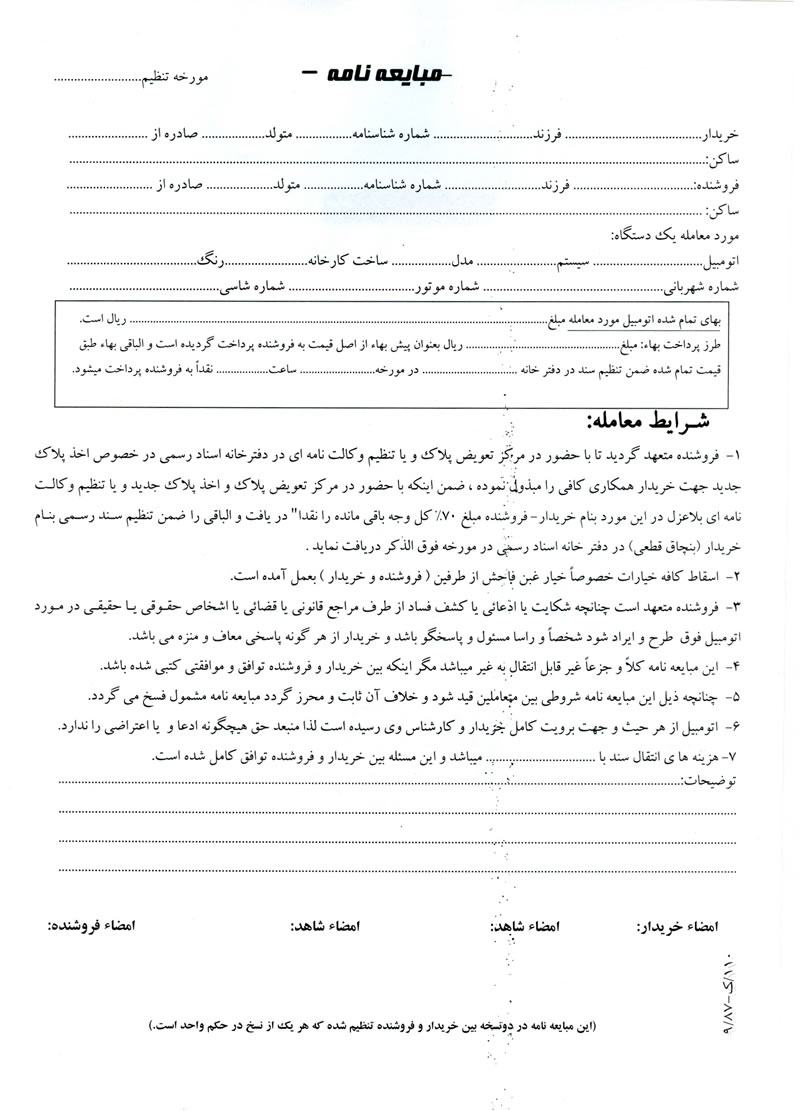 - مبایعه نامه -
مورخه تنظیم..........................
خریدار........................................ فرزند............................. شماره شناسنامه................ متولد.................. صادره از .......................
ساکن:................................................................................................................................
فروشنده:................................... فرزند............................ شماره شناسنامه................. متولد.................... صادره از .........................
ساکن: ................................................................................................................................
مورد معامله یک دستگاه:
اتومبیل................................ سیستم....................... مدل.................. ساخت کارخانه........................رنگ......................................
شماره شهربانی.................................................... شماره موتور..................................... شماره شاسی............................................
بهای تمام شده اتومبیل مورد معامله مبلغ................................................................................ ریال است.
طرز پرداخت بهاء: مبلغ.............................................. ریال بعنوان پیش بهاء از اصل قیمت به فروشنده پرداخت گردیده است و الباقی بهاء طبق
قیمت تمام شده ضمن تنظیم سند در دفتر خانه ............................ در مورخه....................... ساعت................ نقداً به فروشنده پرداخت میشود.
شرایط معامله:
۱- فروشنده متعهد گردید تا با حضور در مرکز تعویض پلاک و یا تنظیم وکالت نامه ای در دفترخانه اسناد رسمی در خصوص اخذ پلاک
جدید جهت خریدار همکاری کافی را مبذول نموده ، ضمن اینکه با حضور در مرکز تعویض پلاک و اخذ پلاک جدید و یا تنظیم وکالت
نامه ای بلاعزل در این مورد بنام خریدار- فروشنده مبلغ ۷۰٪ کل وجه باقی مانده را نقدا" در یافت و الباقی را ضمن تنظیم سند رسمی بنام
خریدار (بنچاق قطعی) در دفتر خانه اسناد رسمی در مورخه فوق الذکر دریافت نماید .
۲- اسقاط کافه خیارات خصوصاً خیار غبن فاحش از طرفین ( فروشنده و خریدار ) بعمل آمده است.
۳- فروشنده متعهد است چنانچه شکایت یا ادعائی یا کشف فساد از طرف مراجع قانونی یا قضائی یا اشخاص حقوقی یا حقیقی در مورد
اتومبیل فوق طرح و ایراد شود شخصاً و راسا مسئول و پاسخگو باشد و خریدار از هر گونه پاسخی معاف و منزه می باشد.
۴- این مبایعه نامه کلاً و جزعاً غیر قابل انتقال به غیر میباشد مگر اینکه بین خریدار و فروشنده توافق و موافقتی کتبی شده باشد.
۵- چنانچه ذیل این مبایعه نامه شروطی بین متعاملین قید شود و خلاف آن ثابت و محرز گردد مبایعه نامه مشمول فسخ می گردد.
۶- اتومبیل از هر حیث و جهت برویت کامل خریدار و کارشناس وی رسیده است لذا منبعد حق هیچگونه ادعا و یا اعتراضی را ندارد.
۷- هزینه ها ی انتقال سند با ................................ میباشد و این مسئله بین خریدار و فروشنده توافق کامل شده است.
توضیحات:................................................................................................................................
امضاء خریدار: امضاء شاهد: امضاء شاهد: امضاء فروشنده:
۹/۸۷-ک/۱۱۰
(این مبایعه نامه در دونسخه بین خریدار و فروشنده تنظیم شده که هر یک از نسخ در حکم واحد است.)